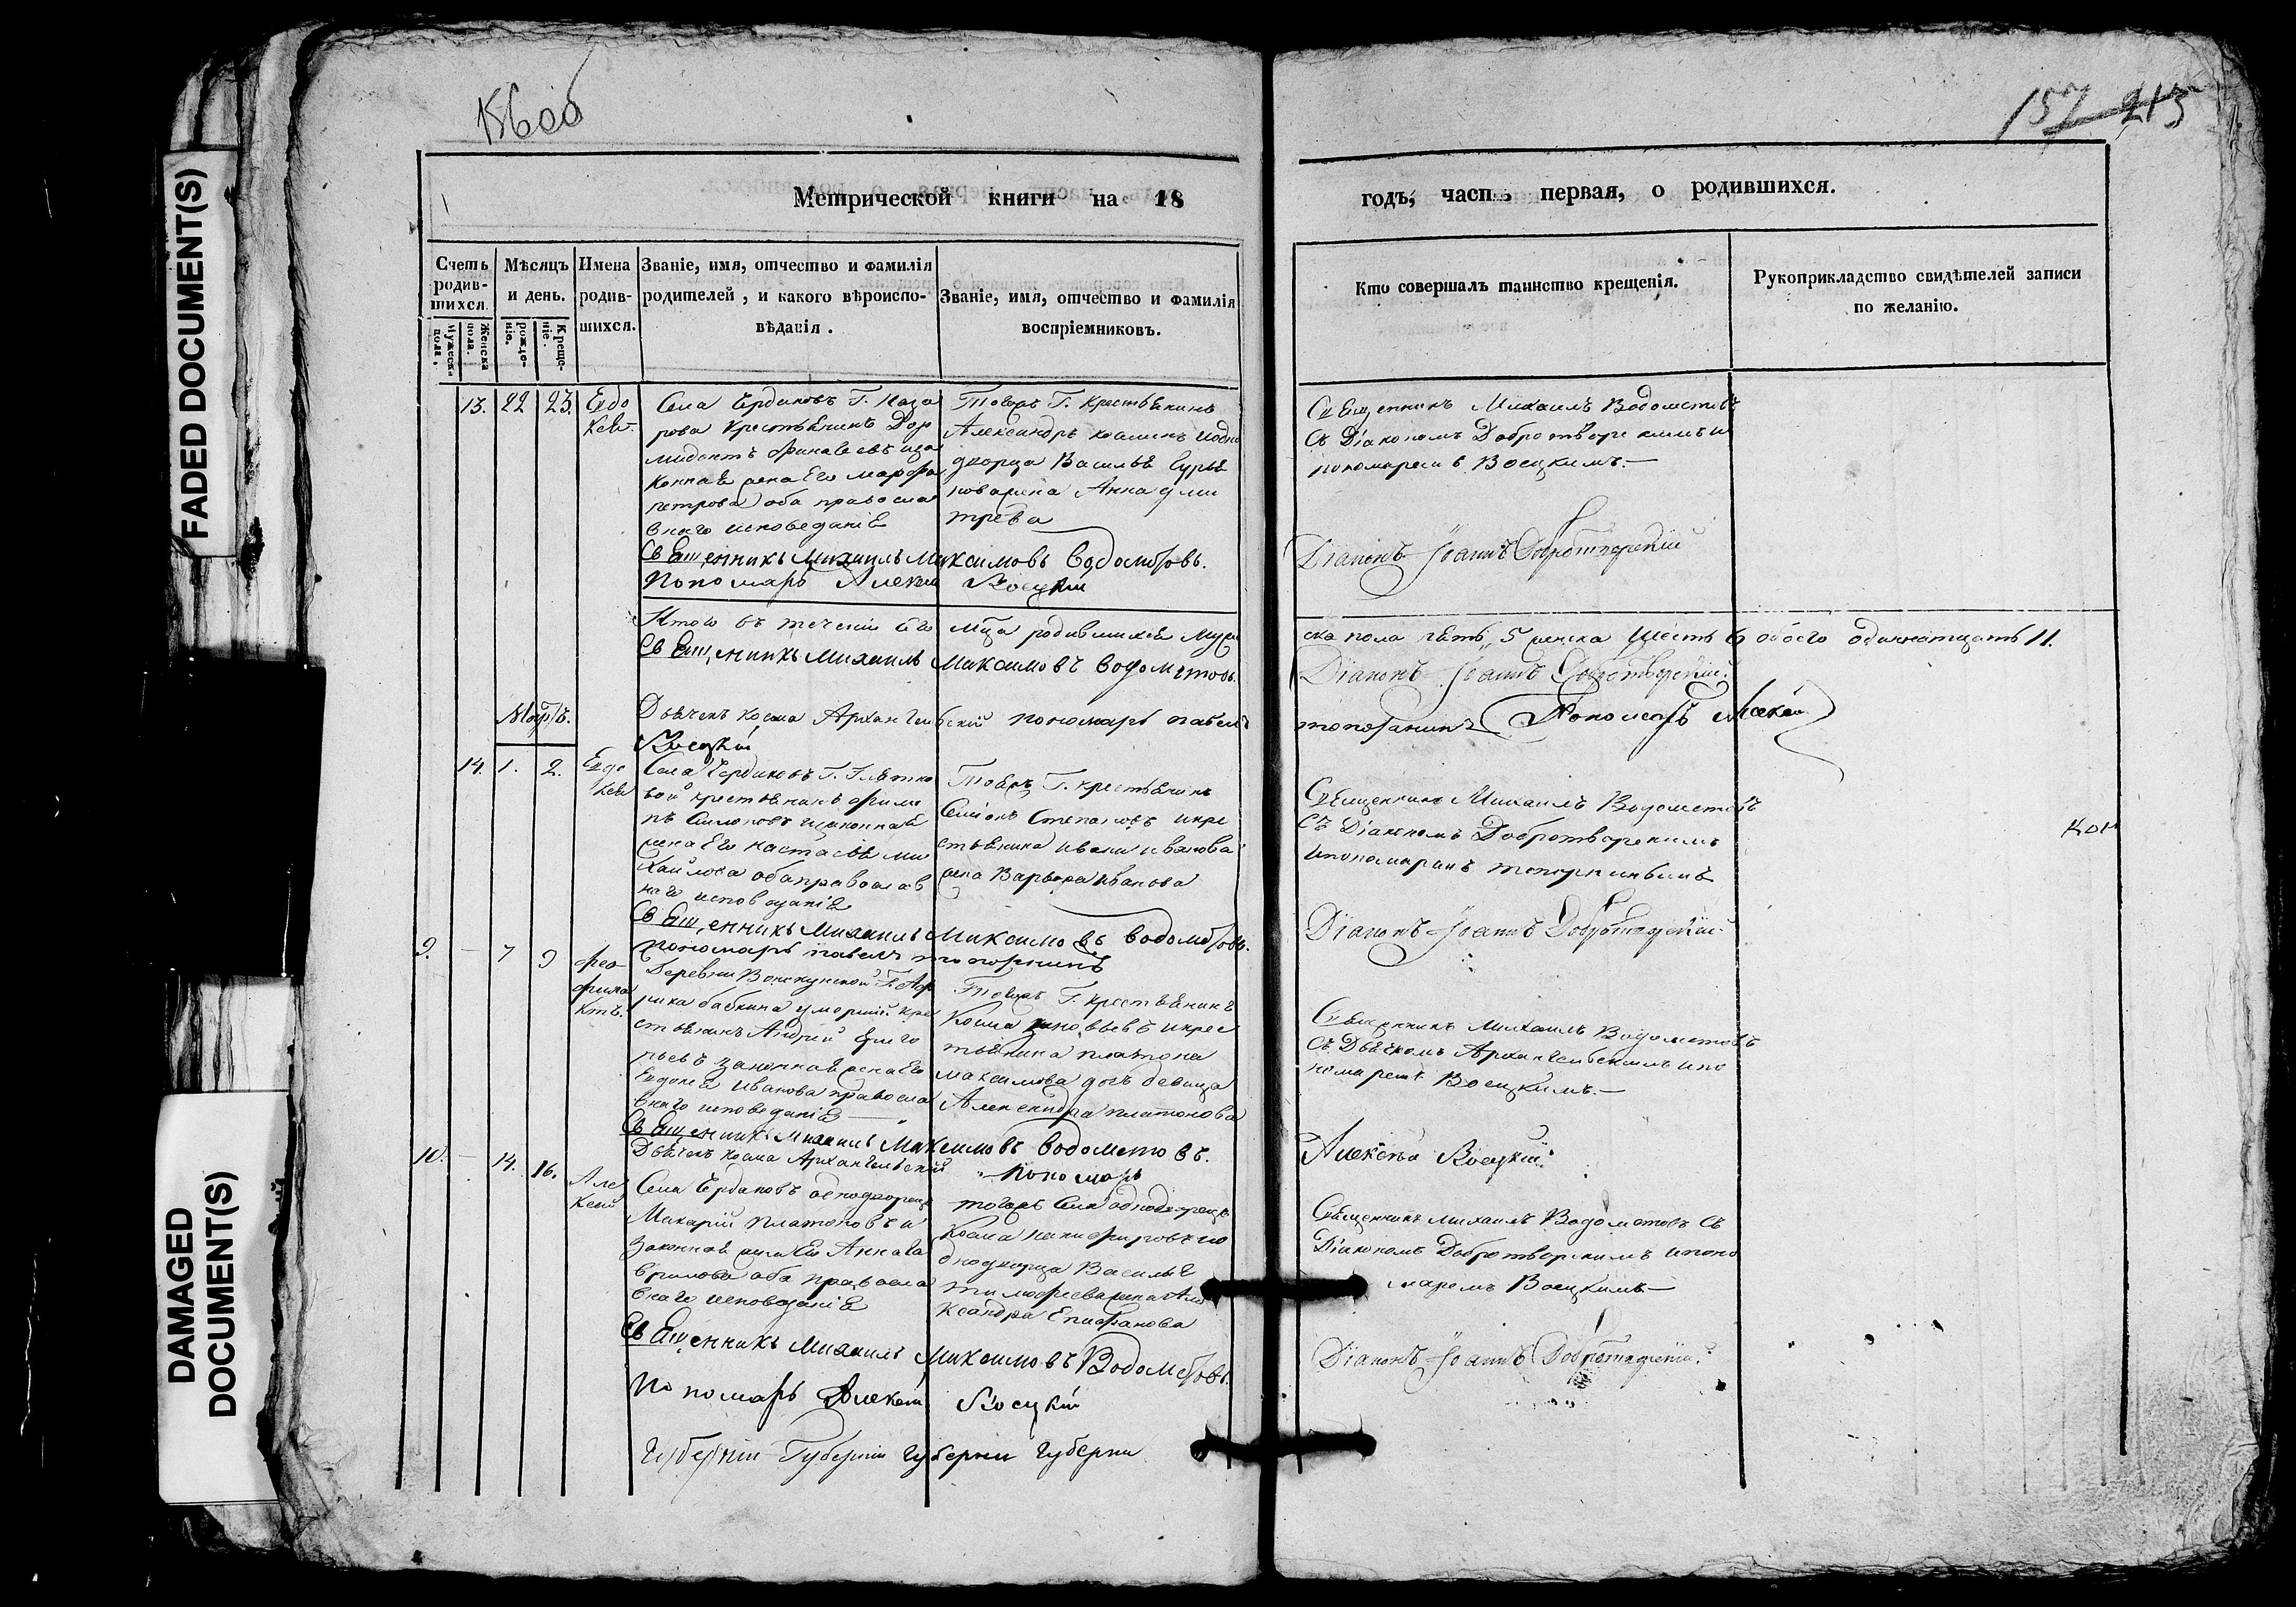 FADED DOCUMENT(S)
DAMAGED
DOCUMENT(S)
157 213
Метрической книги на 18
годъ, часть первая, о родившихся.
Счетъ родив-шихся.
Мужеска пола.
Женска пола.
Мѣсяцъ и день.
рожде-нiе.
Креще-нiе.
Имена родив-шихся.
Званiе, имя, отчество и фамилiя
родителей, и какого вѣроиспо-
вѣданiя.
Званiе, имя, отчество и фамилiя
воспрiемниковъ.
Кто совершалъ таинство крещенiя.
Рукоприкладство свидѣтелей записи
по желанiю.
13. 22 23. Евдо
кея.
Села Чердаковъ Г. Наза
рова крестьянинъ Дор
мидонтъ
конная жена Его Марфа
петрова оба правосла
внаго исповеданiя
Тогожъ Г. крестьянинъ
Александръ
дворца Василья Гурья
нова жена Анна дми
трева
Священникъ Михаилъ Водометовъ
Съ Дiакономъ Добротворскимъ и
пономаремъ Воецкимъ.—
Священникъ Михаилъ Максимовъ Водометовъ.
Пономарь Алексей Воецкiй
Дiаконъ Iоаннъ Добротворскiй
Итого въ теченiи сего мца родившихся муже
ска пола пять 5 женска шесть 6 обоего одиннатцать 11.
Священникъ Михаилъ Максимовъ Водометовъ.
Дiаконъ Iоаннъ Добротворскiй.
Дьячекъ Косма Архангельскiй пономарь павелъ
топорнинъ Пономарь Алексей
Воецкiй
Мартъ.
14. 1. 2. Евдо
кея
Села Чердаковъ Г.
вой крестьянинъ фили
пъ Симоновъ изаконная
жена Его настасья ми
хайлова оба православ
наго исповеданiя
Тогожъ Г. крестьянинъ
Семiонъ Степановъ икре
стьянина ивана иванова
жена Варвара иванова
Священникъ Михаилъ Водометовъ
Съ Дiакономъ Добротворскимъ
ипономаремъ топорнинымъ
Священникъ Михаилъ Максимовъ Водометовъ.
пономарь павелъ топорнинъ
Дiаконъ Iоаннъ Добротворскiй
9. — 7 9 фео
фила
ктъ.
Деревни Г.
бабкина умершiй кре
стьянинъ Андрей
законная жена Его
Евдокея Иванова правосла
внаго исповеданiя
Тогожъ Г. крестьянинъ
Косма зиновьевъ икрес
тьянина платона
максимова дочь девица
Александра платонова
Священникъ Михаилъ Водометовъ
Съ Дьячкомъ Архангельскимъ ипо
номаремъ Воецкимъ.—
Священникъ Михаилъ Максимовъ Водометовъ.
Дьячекъ Косма Архангельскiй Пономарь
Алексей Воецкiй.
10. — 14. 16. Але
ксей
Села Чердаковъ однодворецъ
Макарiй платоновъ и
законная жена Его Анна Га
врилова оба правосла
внаго исповеданiя
тогожъ села однодворецъ
Косма никифоровъ ио
днодворца Василья
тимофеева жена Але
ксандра Епифанова
Священникъ Михаилъ Водометовъ Съ
Дiакономъ Добротворскимъ ипоно
маремъ Воецкимъ—
Священникъ Михаилъ Максимовъ Водометовъ.
Пономарь Алексей Воецкiй
Дiаконъ Iоаннъ Добротворскiй.
Губернiи Губернiи губернiи губерни